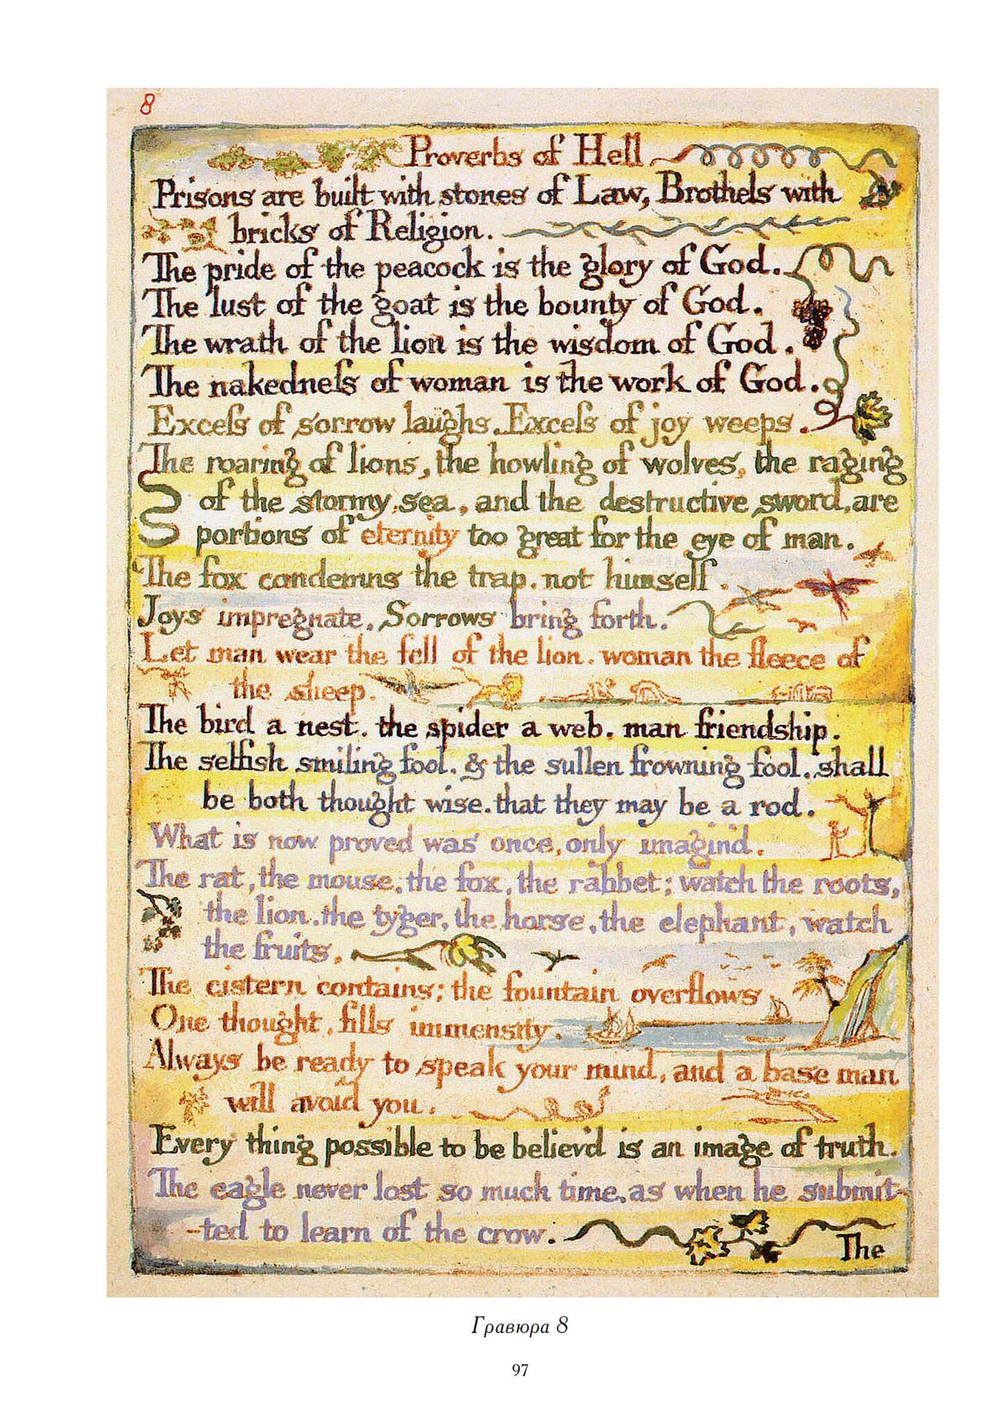 8
Proverbs of Hell
Prisons are built with stones of Law, Brothels with
bricks of Religion.
The pride of the peacock is the glory of God.
The lust of the goat is the bounty of God.
The wrath of the lion is the wisdom of God.
The nakedneſs of woman is the work of God.
Exceſs of sorrow laughs. Exceſs of joy weeps.
The roaring of lions, the howling of wolves, the raging
of the stormy sea, and the destructive sword, are
portions of eternity too great for the eye of man.
The fox condemns the trap, not himself.
Joys impregnate. Sorrows bring forth.
Let man wear the fell of the lion. woman the fleece of
the sheep.
The bird a nest, the spider a web, man friendship.
The selfish smiling fool, & the sullen frowning fool, shall
be both thought wise. that they may be a rod.
What is now proved was once, only imagind.
The rat, the mouse, the fox, the rabbet; watch the roots,
the lion, the tyger, the horse, the elephant, watch
the fruits.
The cistern contains; the fountain overflows
One thought, fills immensity.
Always be ready to speak your mind, and a base man
will avoid you.
Every thing possible to be believ'd is an image of truth.
The eagle never lost so much time, as when he submit-
-ted to learn of the crow.
The
Гравюра 8
97